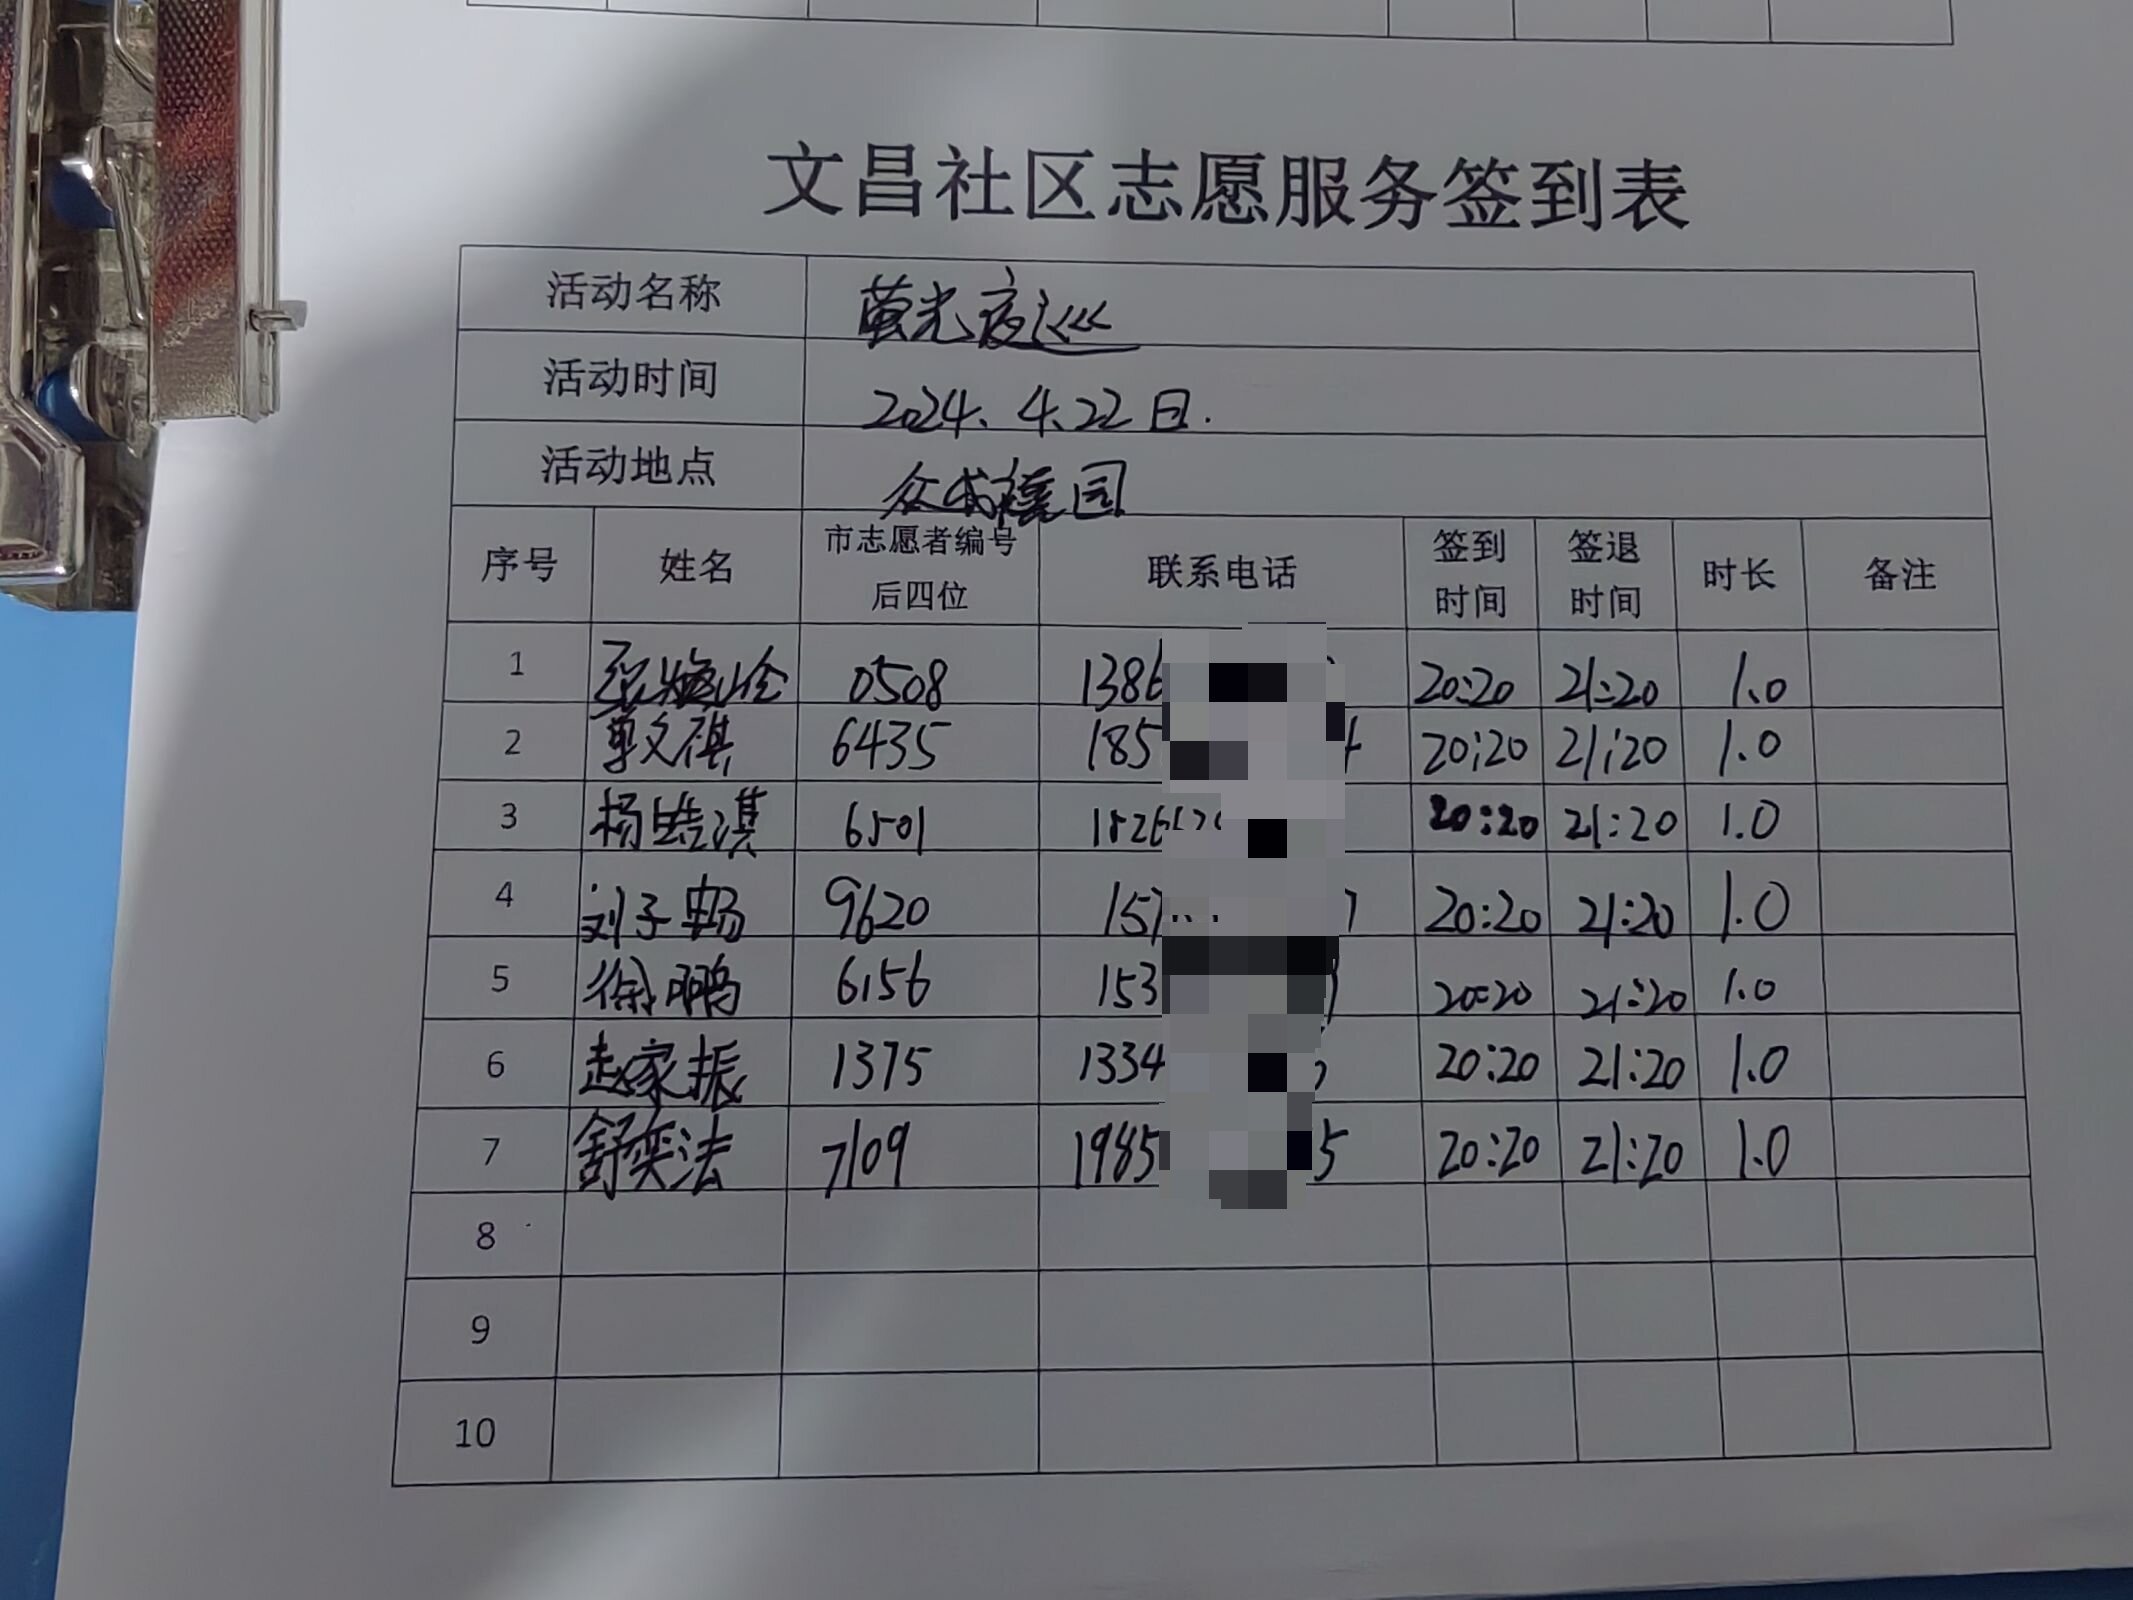 文昌社区志愿服务签到表
活动名称 萤光夜巡
活动时间 2024.4.22日.
活动地点 众成
园
序号 姓名 市志愿者编号后四位 联系电话 签到时间 签退时间 时长 备注
1 0508 1386 20:20 21:20 1.0
2 文祺 6435 185 4 20:20 21:20 1.0
3 杨皓淇 6501 1826629 20:20 21:20 1.0
4 刘子畅 9620 157 7 20:20 21:20 1.0
5 徐鹏 6156 153 20:20 21:20 1.0
6 赵家振 1375 1334 20:20 21:20 1.0
7 舒奕法 7109 1985 5 20:20 21:20 1.0
8
9
10